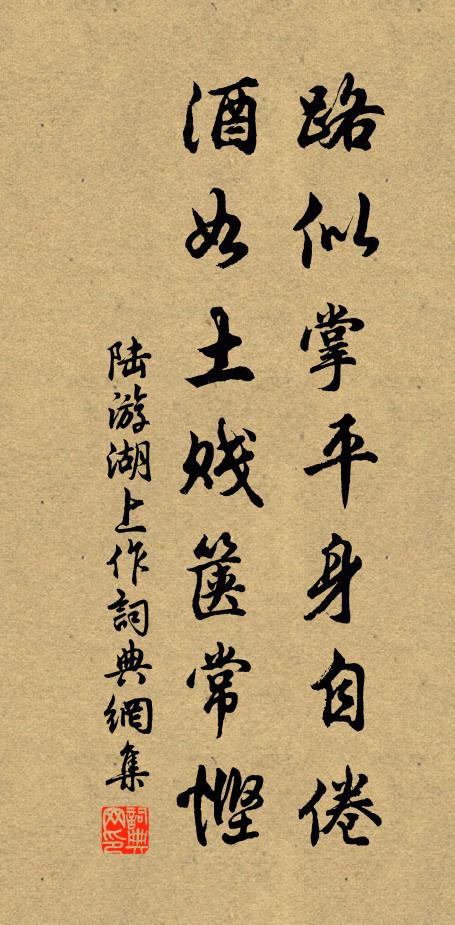 路似掌平身自倦
酒如土贱箧常悭
陆游湖上作詞典網集
詞典
网印